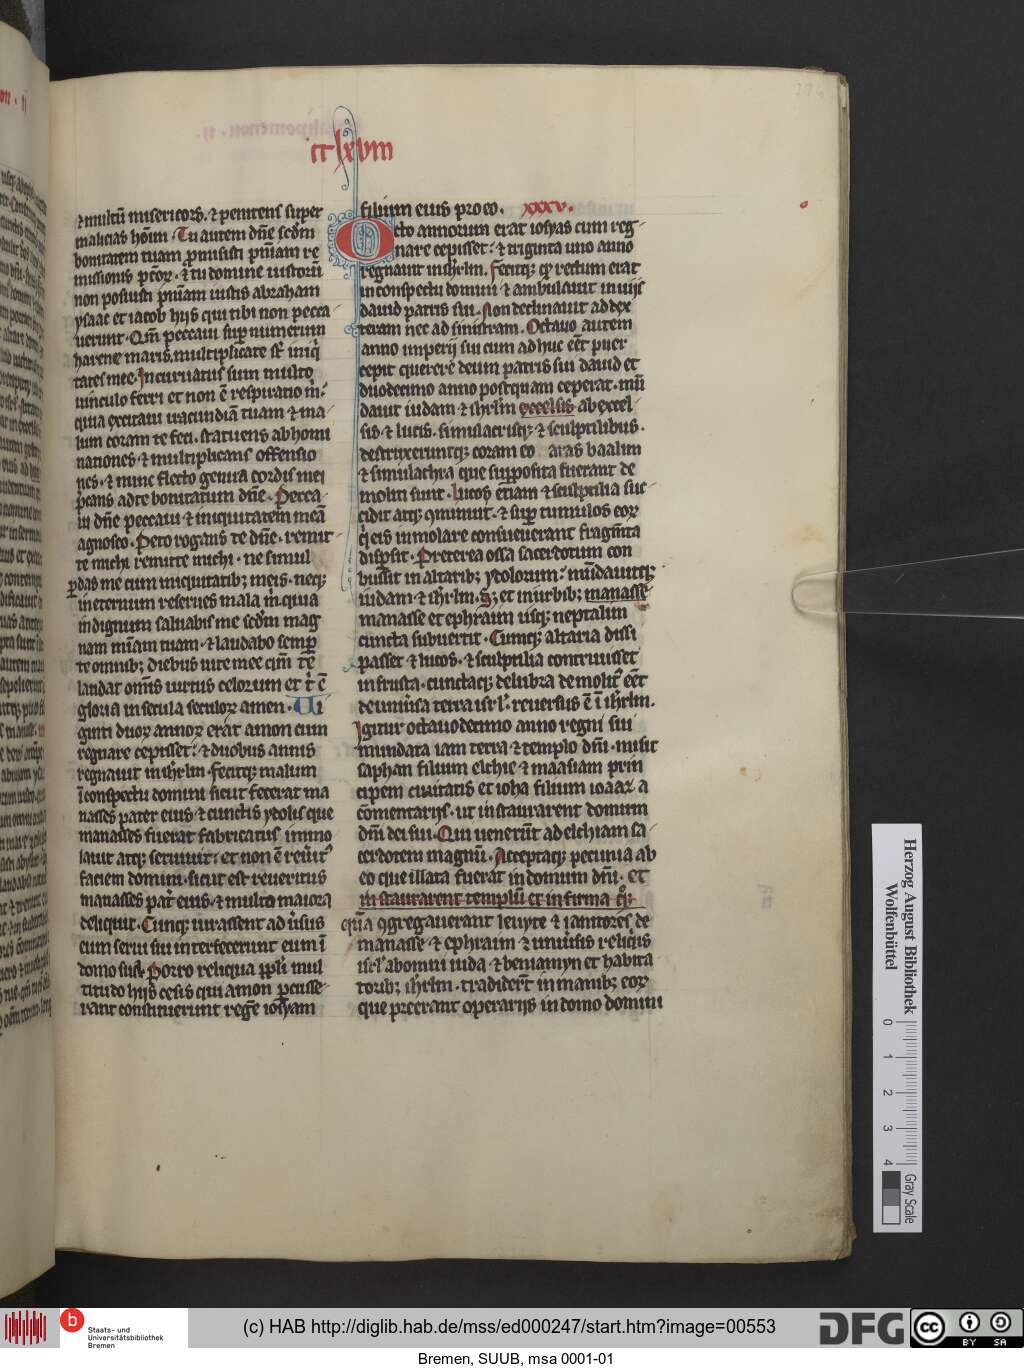 cclxviii
⁊ multū misericors. ⁊ penitens super
malicias hōim · Tu autem dn̄e scd̄m
bonitatem tuam promisisti pn̄iam re
missionis pctōꝝ · ⁊ tu domine iustorū
non posuisti pn̄iam iustis abraham
ysaac et iacob hijs qui tibi non pecca
uerunt · Qm̄ peccaui sup numerum
harene maris. multiplicate st̄ iniq̇
tates mee · Incuruatus sum multo
uinculo ferri et non ē respiratio m̄ ·
quia excitaui iracundiā tuam ⁊ ma
lum coram te feci. statuens abhomi
nationes · ⁊ multiplicans offensio
nes · ⁊ nunc flecto genua cordis mei
p̄cans ad te bonitatum dn̄e · Pecca
ui dn̄e peccaui ⁊ iniquitatem meā
agnosco · Peto rogans te dn̄e · remit
te michi remitte michi · ne simul
ꝑdas me cum iniquitatibꝫ meis · neqꝫ
in eternum reserues mala m̄ · quia
indignum saluabis me scd̄m mag
nam mīam tuam · ⁊ laudabo semꝑ
te omnibꝫ diebus uite mee · qm̄ te
laudat om̄is uirtus celorum et t̄ ē
gloria in secula seculoꝝ amen · Ui
ginti duoꝝ annoꝝ erat amon cum
regnare cepisset · ⁊ duobus annis
regnauit in ihrl̄m · fecitqꝫ malum
ī conspectu domini sicut fecerat ma
nasses pater eius · ⁊ cunctis ydolis que
manasses fuerat fabricatus immo
lauit atqꝫ seruiuit · et non ē reuerit᷒
faciem domini · sicut est reueritus
manasses pat̄ eius · ⁊ multo maiora
deliquit · Cumqꝫ iurassent aduersus
eum serui sui interfecerunt eum ī
domo sua · Porro reliqua ppl̄i mul
titudo hijs cesis qui amon percusse
rant constituerunt regē iosyam
filium eius pro eo. xxxv.
Octo annorum erat iosyas cum reg
nare cepisset · ⁊ triginta uno anno
regnauit in ihrl̄m. fecitqꝫ qd̄ rectum erat
in conspectu domini ⁊ ambulauit in uijs
dauid patris sui. Non declinauit ad dex
teram nec ad sinistram. Octauo autem
anno imperij sui cum ad huc eēt puer
cepit querere deum patris sui dauid et
duodecimo anno postquam ceperat · mū
dauit iudam ⁊ ihrl̄m excelsis ab excel
sis · ⁊ lucis. simulacrisqꝫ · ⁊ sculptilibus.
destruxeruntqꝫ coram eo aras baalim
⁊ simulachra que supposita fuerant de
moliti sunt · lucos etiam ⁊ sculptilia suc
cidit atqꝫ ꝯminuit · ⁊ sup tumulos eoꝝ
q̇ eis immolare consueuerant fragm̄ta
dispersit · Preterea ossa sacerdotum con
bussit in altaribꝫ ydolorum · mūdauitqꝫ
iudam ⁊ ihrl̄m. Sꝫ et in urbibꝫ manasse
manasse et ephraim usqꝫ neptalim
cuncta subuertit · Cumqꝫ altaria dissi
passet ⁊ lucos · ⁊ sculptilia contriuisset
in frusta · cunctaqꝫ delubra demolit᷒ eēt
de uniūsa terra isrl̄. reuersus ē ī ihrl̄m.
Igitur octauodecimo anno regni sui
mundata iam terra ⁊ templo dn̄i · misit
saphan filium elchie ⁊ maasiam prin
cipem ciuitatis et ioha filium ioaaꝝ a
cōmentarijs · ut instaurarent domum
dn̄i dei sui · Qui uenerūt ad elchiam sa
cerdotem magnū · Acceptaqꝫ pecunia ab
eo que illata fuerat in domum dn̄i · et
instaurarent templū et infirma q̄qꝫ
quā ꝯgregauerant leuite ⁊ ianitores de
manasse ⁊ ephraim ⁊ uniūsis reliquis
isrl̄ ab omni iuda ⁊ beniamyn et habita
toribꝫ ihrl̄m · tradiderūt in manibꝫ eoꝝ
que preerant operarijs in domo domini
Herzog August Bibliothek
Wolfenbüttel
0 1 2 3 4
Gray Scale
b Staats- und
Universitätsbibliothek
Bremen
(c) HAB http://diglib.hab.de/mss/ed000247/start.htm?image=00553
DFG
cc BY SA
Bremen, SUUB, msa 0001-01